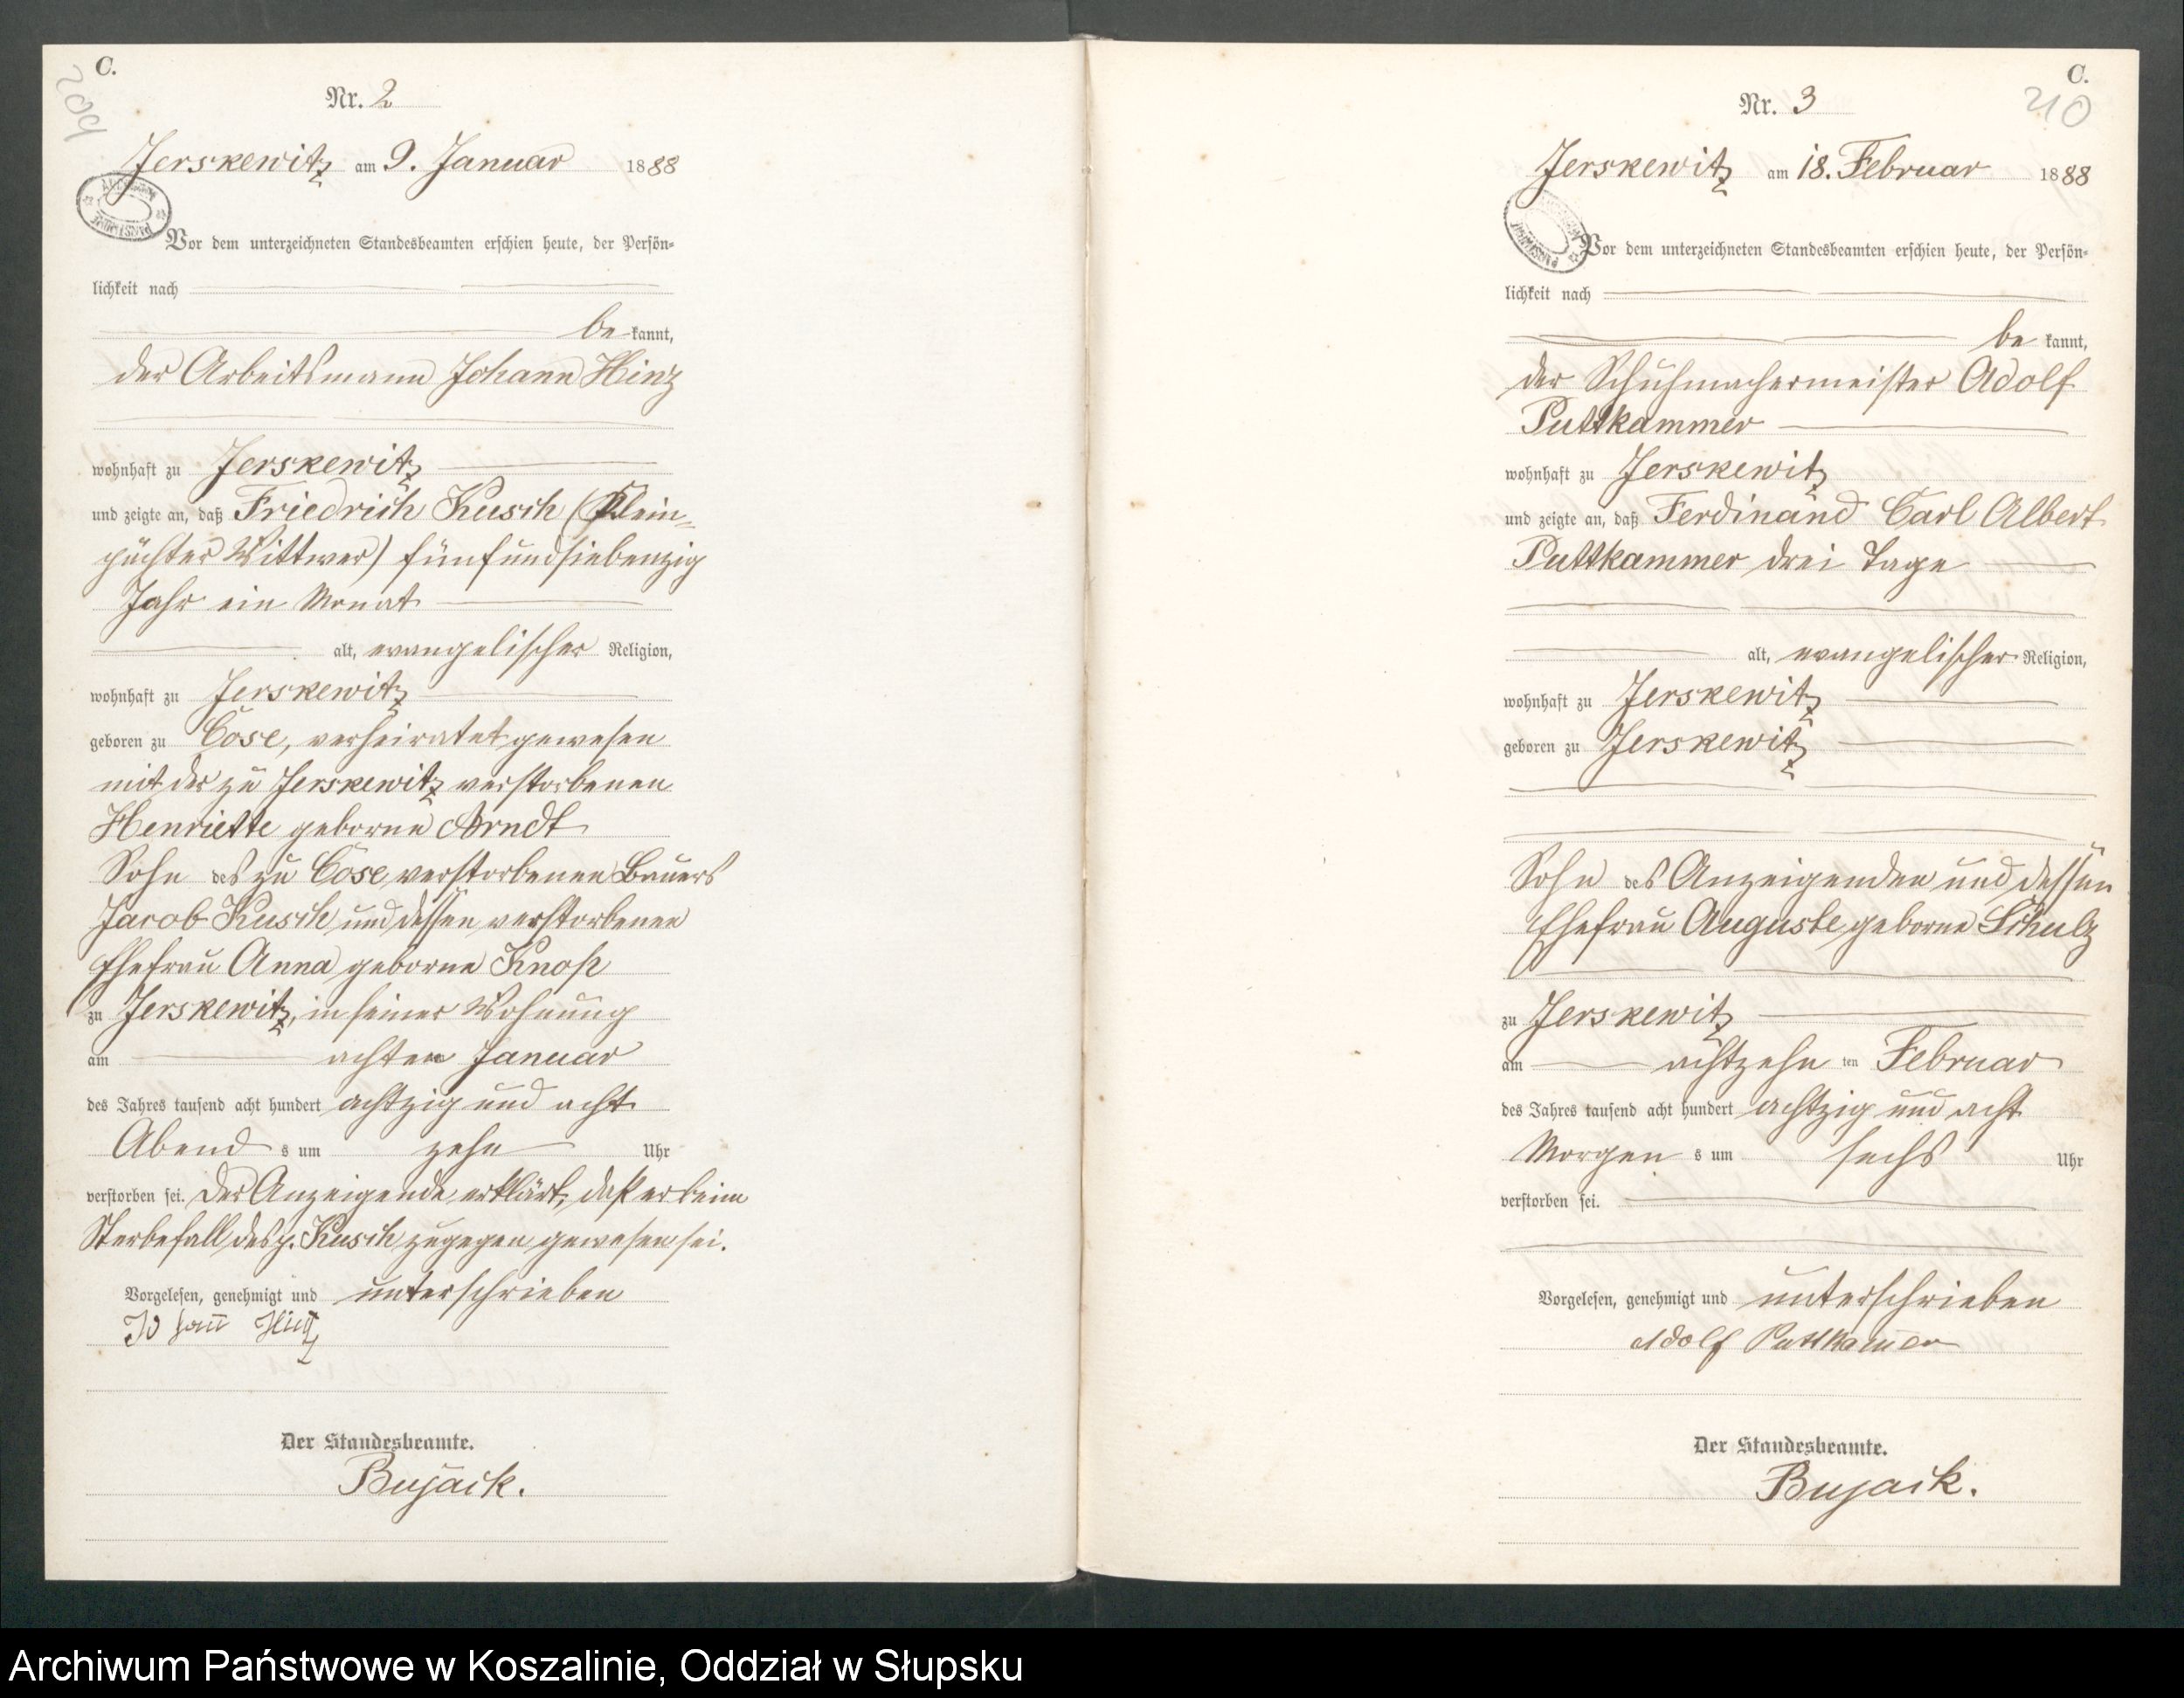 C.
209
Nr. 2
Jerskewitz am 9. Januar 1888
Vor dem unterzeichneten Standesbeamten erschien heute, der Persön-
lichkeit nach
be kannt,
der Arbeitsmann Johann Hinz
wohnhaft zu Jerskewitz
und zeigte an, daß Friedrich Kusch (Klein-
pächter Wittwer) fünfundsiebenzig
Jahr ein Monat
alt, evangelischer Religion,
wohnhaft zu Jerskewitz
geboren zu Cose, verheiratet gewesen
mit der zu Jerskewitz verstorbenen
Henriette geborne Arndt
Sohn des zu Cose verstorbenen Bauers
Jacob Kusch und dessen verstorbenen
Ehefrau Anna geborne Knop
zu Jerskewitz, in seiner Wohnung
am achten Januar
des Jahres tausend acht hundert achtzig und acht
Abend s um zehn Uhr
verstorben sei. Der Anzeigende erklärt, daß er beim
Sterbefall des p. Kusch zugegen gewesen sei.
Vorgelesen, genehmigt und unterschrieben
Johann Hintz
Der Standesbeamte.
Bujack.
C.
210
Nr. 3
Jerskewitz am 18. Februar 1888
Vor dem unterzeichneten Standesbeamten erschien heute, der Persön-
lichkeit nach
be kannt,
der Schuhmachermeister Adolf
Puttkammer
wohnhaft zu Jerskewitz
und zeigte an, daß Ferdinand Carl Albert
Puttkammer drei Tage
alt, evangelischer Religion,
wohnhaft zu Jerskewitz
geboren zu Jerskewitz
Sohn des Anzeigenden und dessen
Ehefrau Auguste geborne Schulz
zu Jerskewitz
am achtzehn ten Februar
des Jahres tausend acht hundert achtzig und acht
Morgen s um sechs Uhr
verstorben sei.
Vorgelesen, genehmigt und unterschrieben
Adolf Puttkamer
Der Standesbeamte.
Bujack.
Archiwum Państwowe w Koszalinie, Oddział w Słupsku